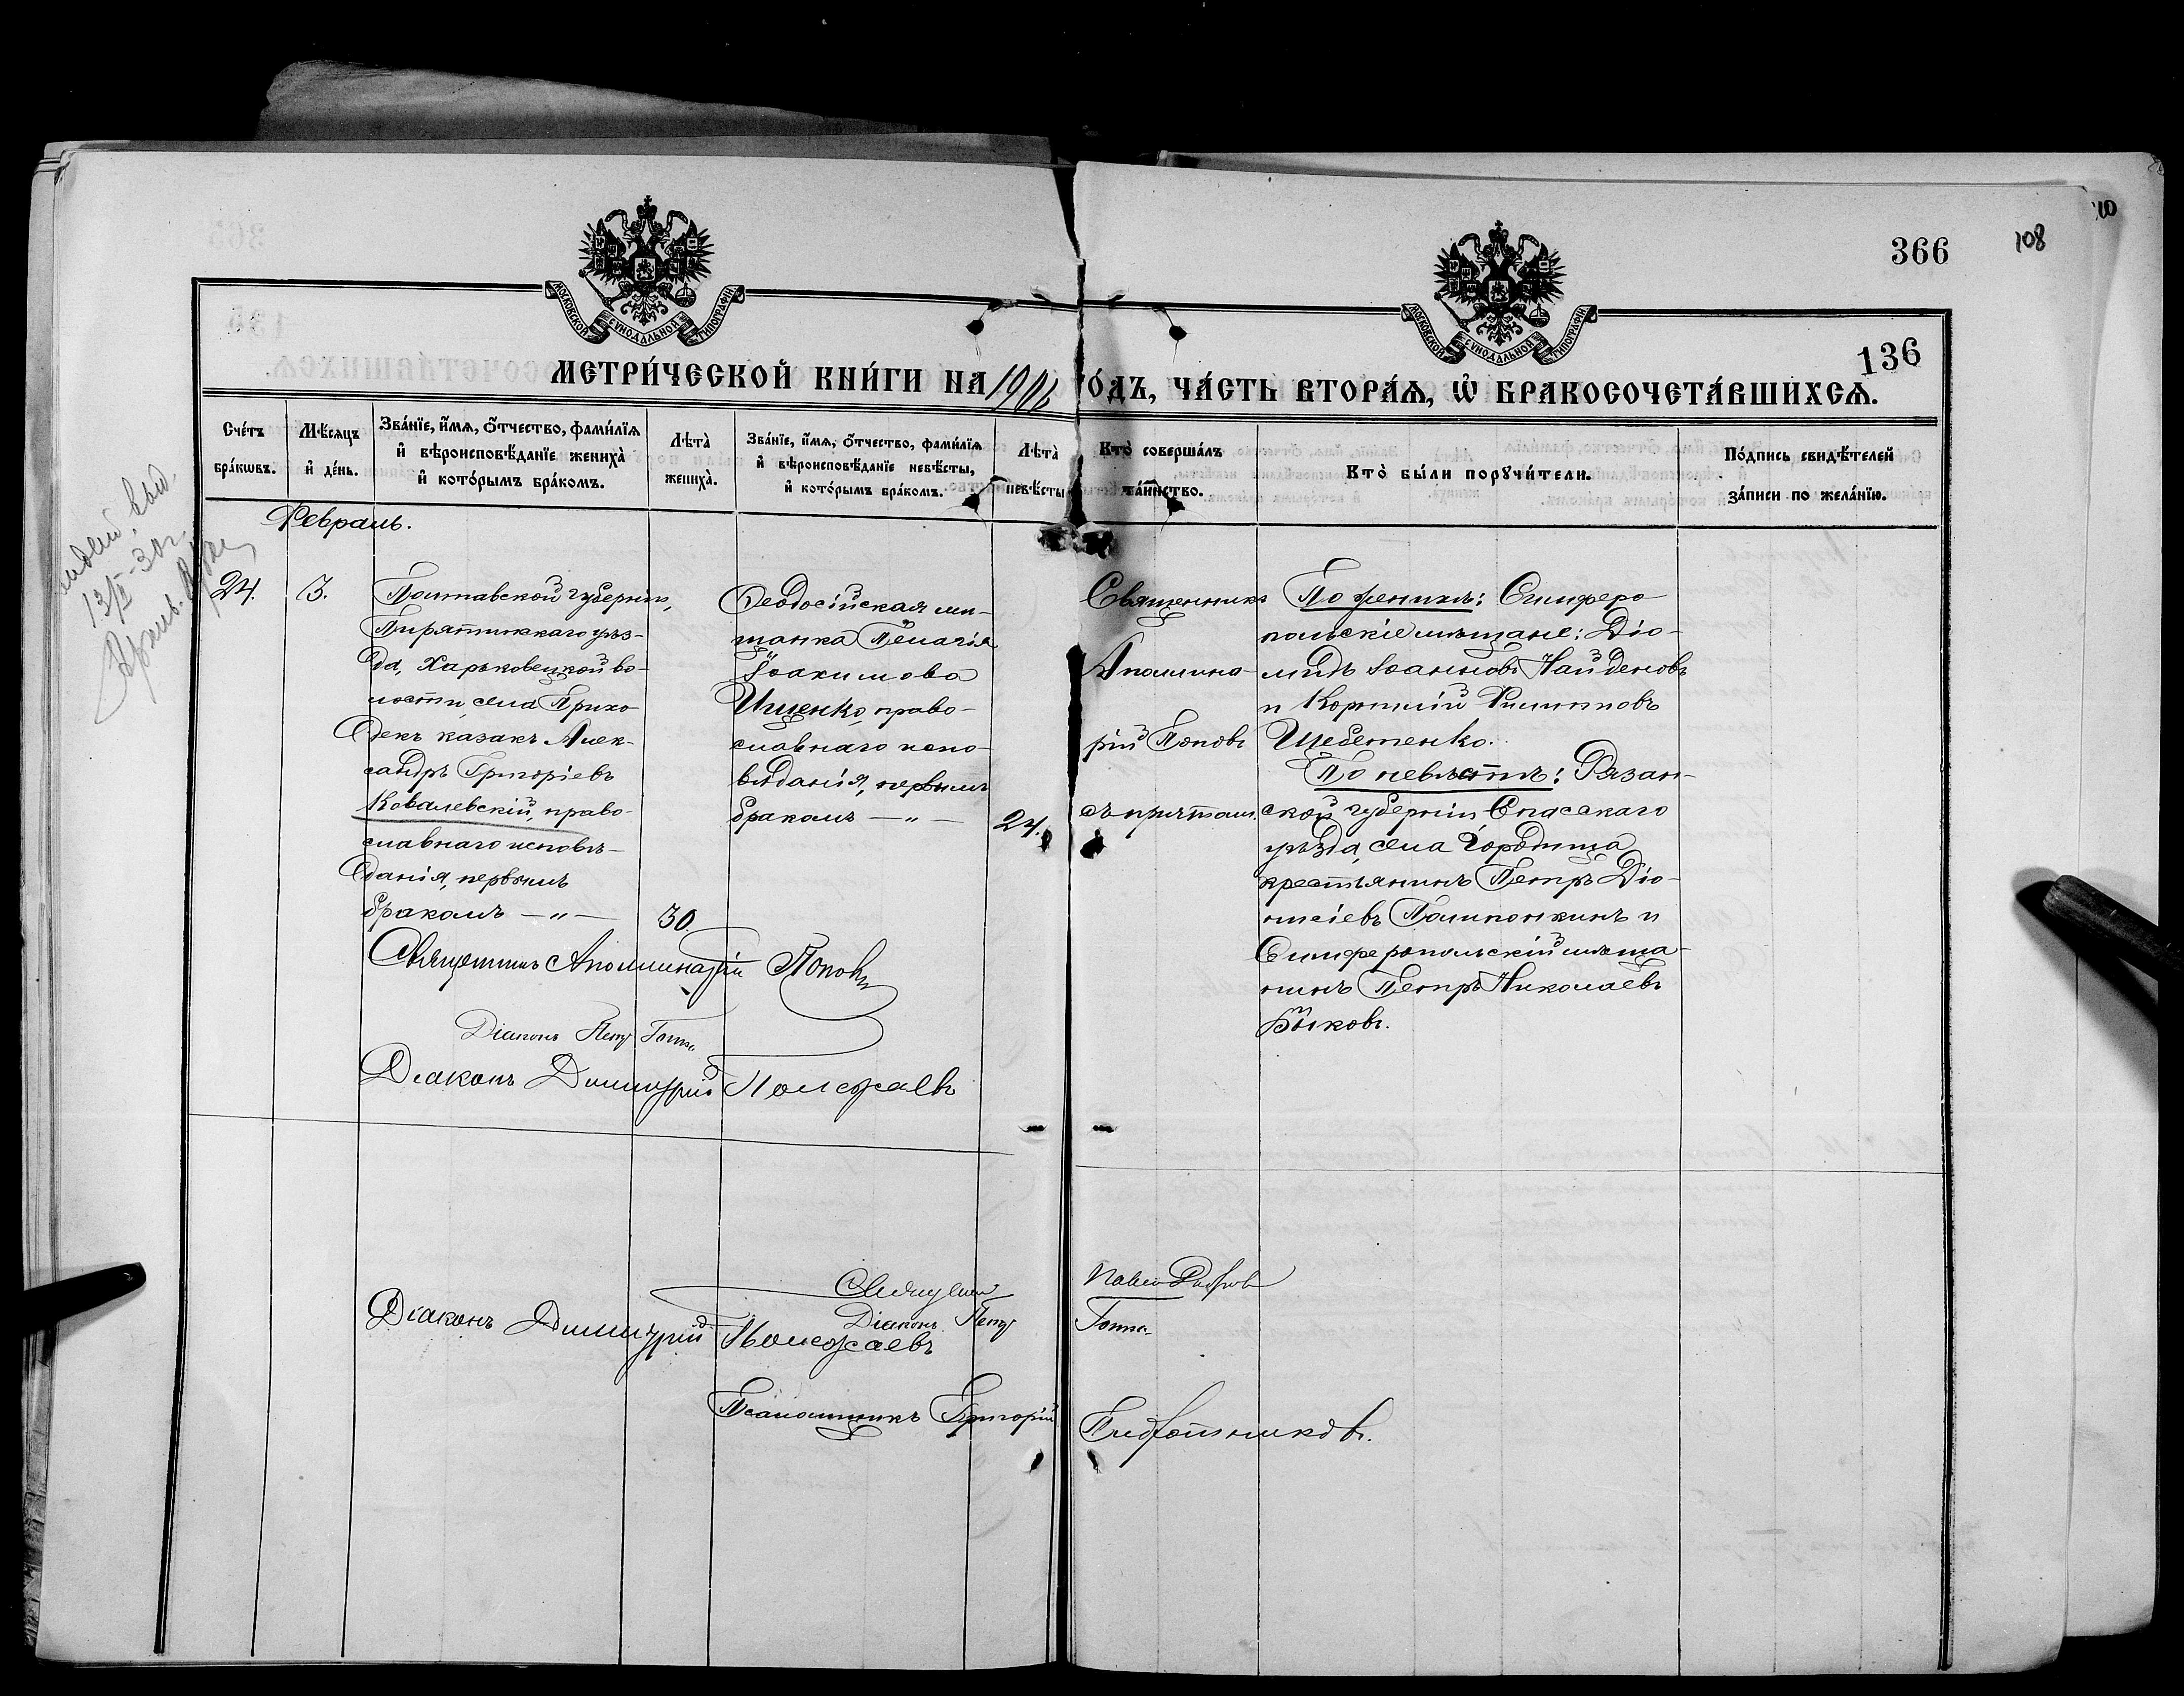 366
108
136
МОСКОВСКОЙ СУНОДАЛЬНОЙ ТИПОГРАФІИ
МОСКОВСКОЙ СУНОДАЛЬНОЙ ТИПОГРАФІИ
МЕТРИ́ЧЕСКОЙ КНИ́ГИ НА 190 ГО́ДЪ, ЧА́СТЬ ВТОРА́Я, Ѡ҆ БРАКОСОЧЕТА́ВШИХСЯ.
Сче́тъ бра́кѡвъ.
Мѣ́сяцъ и҆ де́нь.
Зва́нїе, и҆́мя, ѻ҆́тчество, фами́лїя и҆ вѣроисповѣ́данїе жениха̀ и҆ кото́рымъ бра́комъ.
Лѣта̀ жениха̀.
Зва́нїе, и҆́мя, ѻ҆́тчество, фами́лїя и҆ вѣроисповѣ́данїе невѣ́сты, и҆ кото́рымъ бра́комъ.
Лѣта̀ невѣ́сты
Кто̀ соверша́лъ та́инство.
Кто̀ бы́ли порꙋчи́тели.
По́дпись свидѣ́телей за́писи по жела́нїю.
Февраль.
24.
3.
Полтавской губерніи,
Пирятинскаго уѣз-
да, Харьковецкой во-
лости, села Прихо
декъ казакъ Алек-
сандръ Григоріевъ
Ковалевскій, право-
славнаго исповѣ-
данія, первымъ
бракомъ — „ —
30.
Ѳеодосійская мѣ-
щанка Пелагія
Іоакимова
Ищенко, право-
славнаго испо-
вѣданія, первымъ
бракомъ — „ —
24.
Священникъ
Аполлина-
рій Поповъ
съ причтомъ.
По женихѣ: Симферо
польскіе мѣщане: Діо-
мидъ Іоанновъ Найденовъ
и Корнилій Филипповъ
Щебетенко.
По невѣстѣ: Рязан-
ской губерніи, Спасскаго
уѣзда, села Городища
крестьянинъ Петръ Діо-
нисіевъ и
Симферопольскій мѣща-
нинъ Петръ Николаевъ
Быковъ.
Священникъ Аполлинарій Поповъ
Діаконъ Петр
Діаконъ Димитрій Полежаевъ
Діаконъ Петр
Діаконъ Димитрій Полежаевъ
Псаломщикъ Григорій